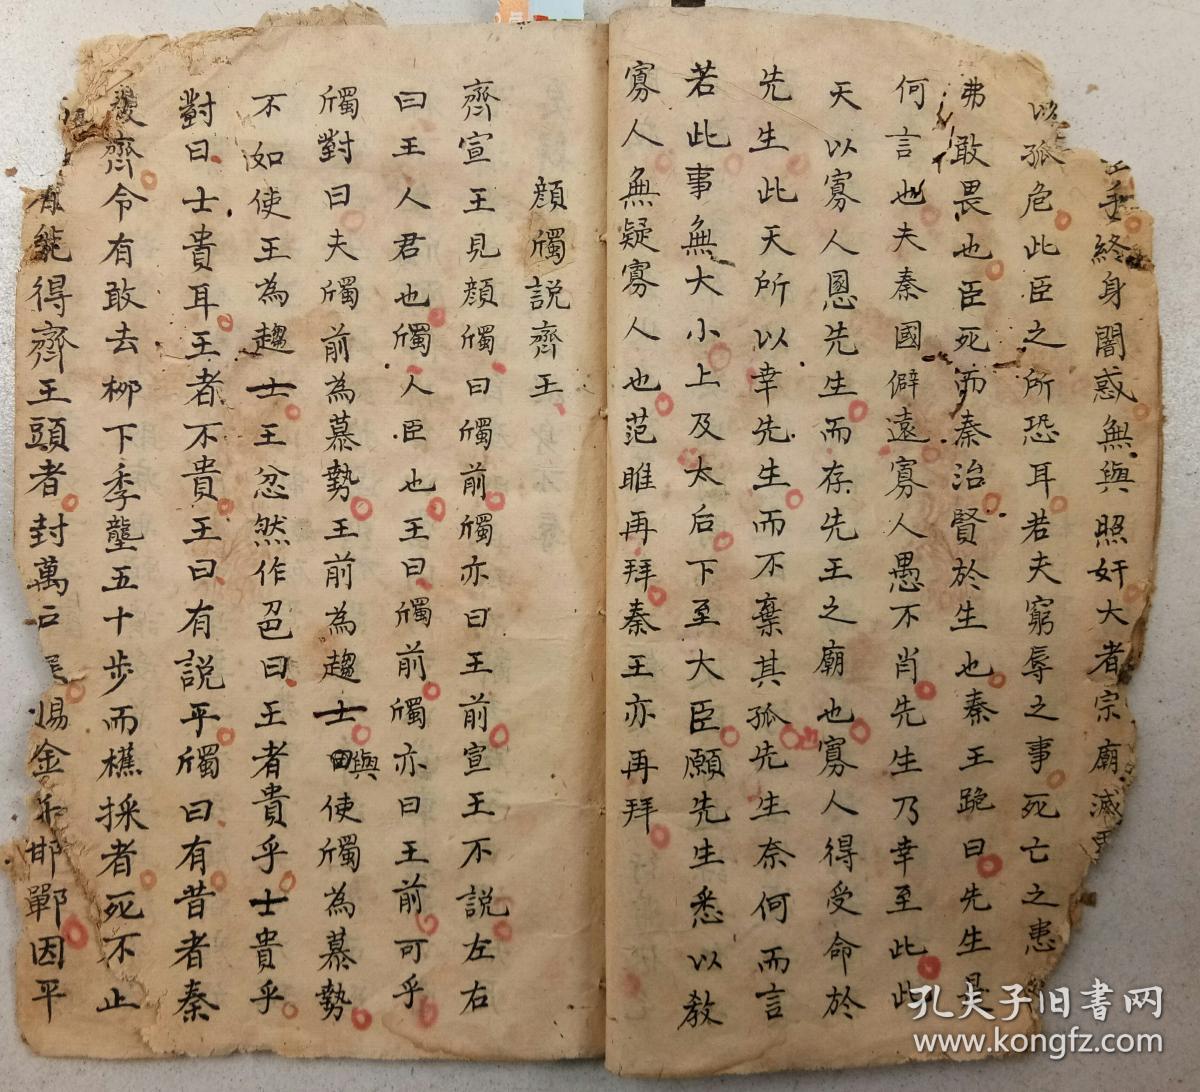 手終身闇惑無與照奸大者宗廟滅
以孤危此臣之所恐耳若夫窮辱之事死亡之患
弗敢畏也臣死而秦治賢於生也秦王跪曰先生是
何言也夫秦國僻遠寡人愚不肖先生乃幸至此此
天以寡人慁先生而存先王之廟也寡人得受命於
先生此天所以幸先生而不棄其孤先生奈何而言
若此事無大小上及太后下至大臣願先生悉以教
寡人無疑寡人也范睢再拜秦王亦再拜
顏斶說齊王
齊宣王見顏斶曰斶前斶亦曰王前宣王不說左右
曰王人君也斶人臣也王曰斶前斶亦曰王前可乎
斶對曰夫斶前為慕勢王前為趨士與使斶為慕勢
不如使王為趨士王忿然作色曰王者貴乎士貴乎
對曰士貴耳王者不貴王曰有說乎斶曰有昔者秦
齊令有敢去柳下季壟五十步而樵採者死不止
有能得齊王頭者封萬戶賜金邯鄲因平
孔夫子旧书网
www.kongfz.com